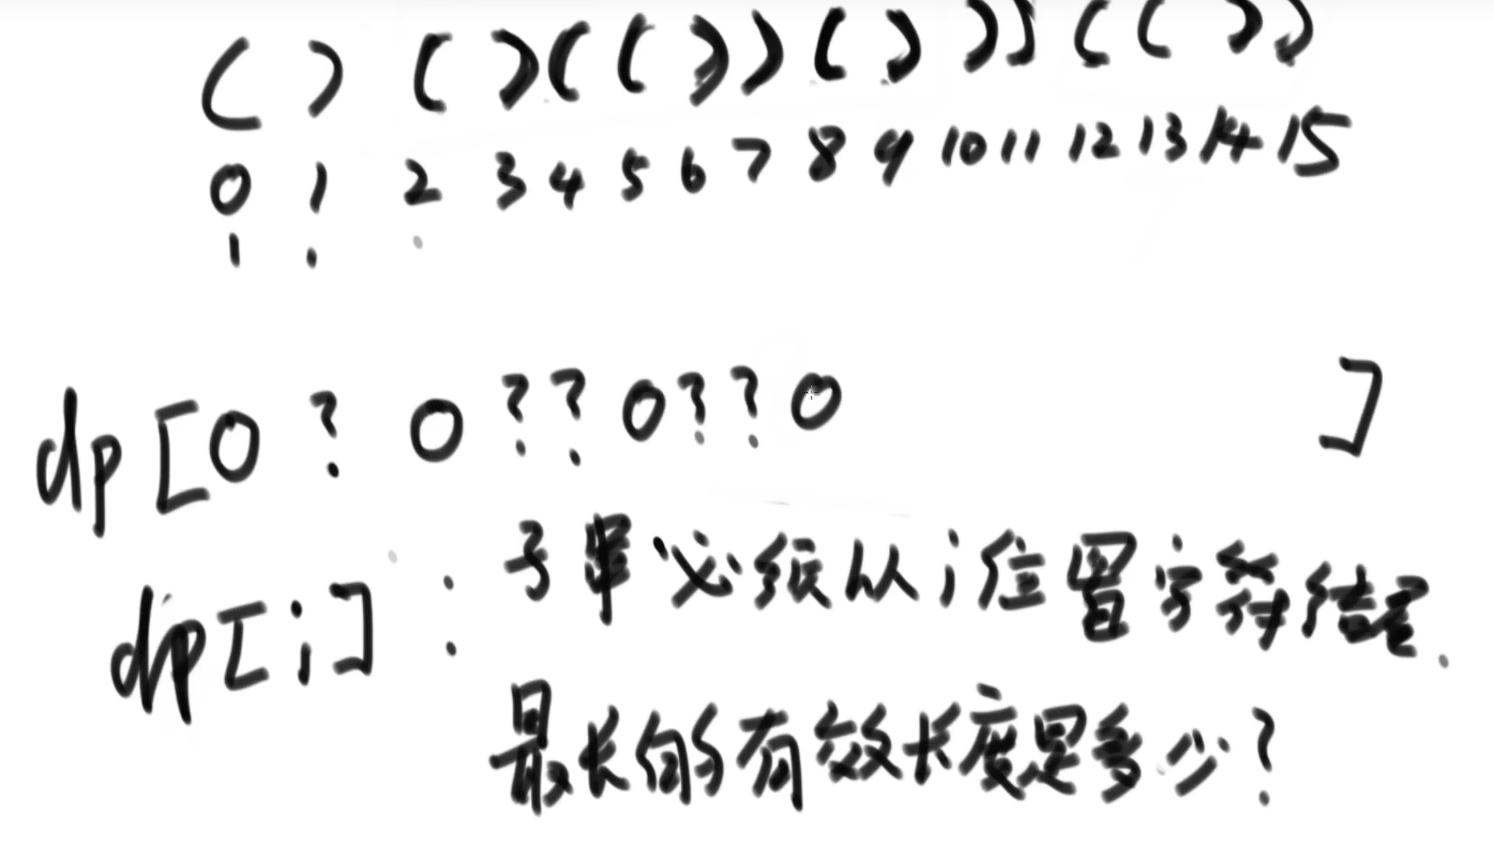 ( ) ( ) ( ( ) ) ( ) ) ) ( ( ) )
0 1 2 3 4 5 6 7 8 9 10 11 12 13 14 15
dp [ 0 ? 0 ? ? 0 ? ? 0 ]
dp[i] : 子串必须从i位置字符结尾.
最长的有效长度是多少?